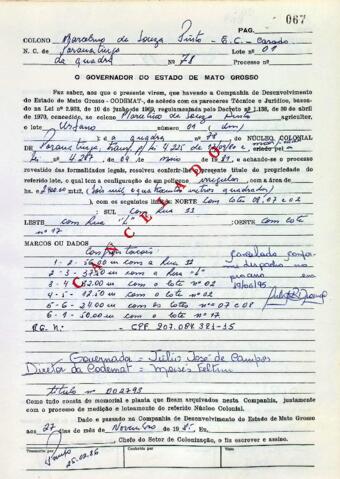 PAG. 067
COLONO Marcelino de Souza Pinto - E.C. - Casado
N. C. de Paranatinga Lote nº 01
da quadra Nº 78 Processo nº
O GOVERNADOR DO ESTADO DE MATO GROSSO
Faz saber, aos que o presente virem, que havendo a Companhia de Desenvolvimento
do Estado de Mato Grosso - CODEMAT-, de acôrdo com os pareceres Técnico e Jurídico, basea-
do na Lei nº 2.083, de 10 de junho de 1963, regulamentada pelo Decreto nº 1.138, de 30 de abril
de 1970, concedido ao colono Marcelino de Souza Pinto agricultor,
o lote Urbano número 01 (um)
e a quadra nº 78, NÚCLEO COLONIAL
DE Paranatinga, criado pela
Lei 4.287, de 09 de maio de 1981, e achando-se o processo
revestido das formalidades legais, resolveu conferir-lhe o presente título de propriedade do
referido lote, o qual tem a configuração de um polígono irregular com a área de
hs 2400 mts2 (dois mil e quatrocentos metros quadrados)
, com os seguintes limites: NORTE com lote 08, 07 e 02
; SUL com Rua 22
LESTE com Rua "L" ; OESTE com lote
nº 17
CANCELADO
MARCOS OU DADOS Confrontacais
1 - 2 - 56.00 m com a Rua 22
2 - 3 - 37.50 m com a Rua "L"
3 - 4 - 32.00 m com o lote nº 02
4 - 5 - 12.50 m com o lote nº 02
5 - 6 - 24.00 m com os lotes nº 07 e 08
6 - 1 - 50.00 m com o lote nº 17
Cancelado confor-
me
19/06/95
R.G. Nº - CPF 207.084.381-15
Governador = Júlio José de Campos
Diretor da Codemat = Moisés Feltrin
título nº 002793
Como tudo consta do memorial e planta que ficam arquivados nesta Companhia, juntamente
com o processo de medição e loteamento do referido Núcleo Colonial.
Dado e passado na Companhia de Desenvolvimento do Estado de Mato Grosso
aos 27 dias do mês de Novembro de 1985. Eu,
, Chefe do Setor de Colonização, o fiz escrever e assino.
Transcrito por Conferido por Visto
25.02.86